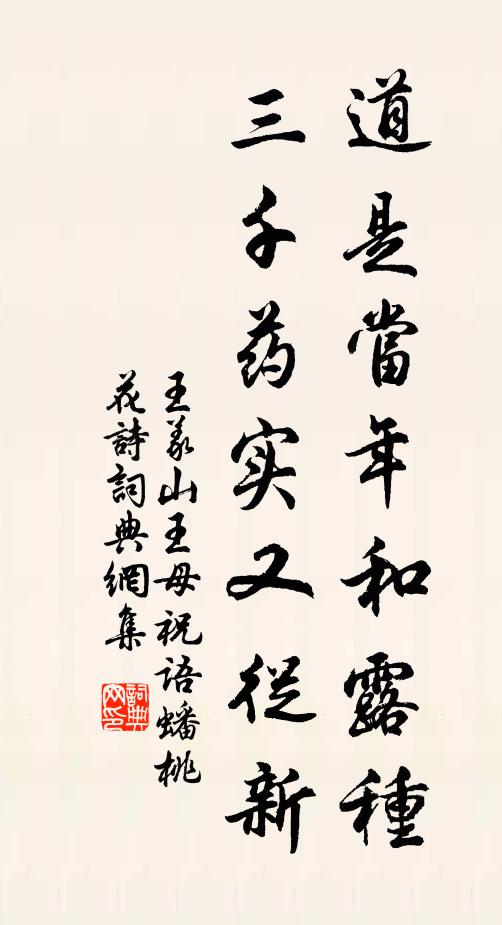 道是當年和露種
三千药实又從新
王义山王母祝语蟠桃
花詩詞典網集
詞典网印